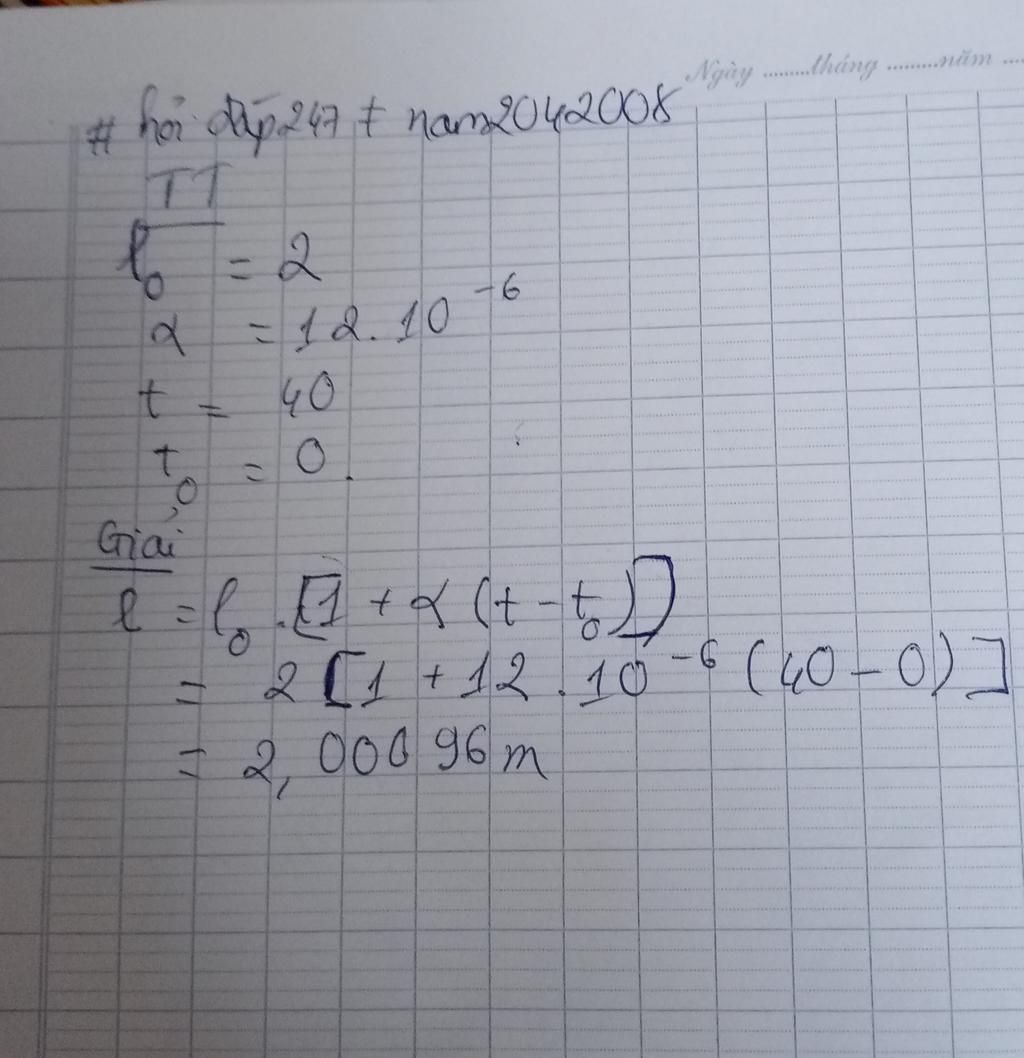 Ngày ........tháng .........năm ....
# hỏi đáp 247 + nam2042008
TT
l₀ = 2
α = 12.10⁻⁶
t = 40
t₀ = 0.
Giải
l = l₀.[1 + α (t - t₀)]
= 2 [1 + 12.10⁻⁶ (40 - 0)]
= 2,00096 m